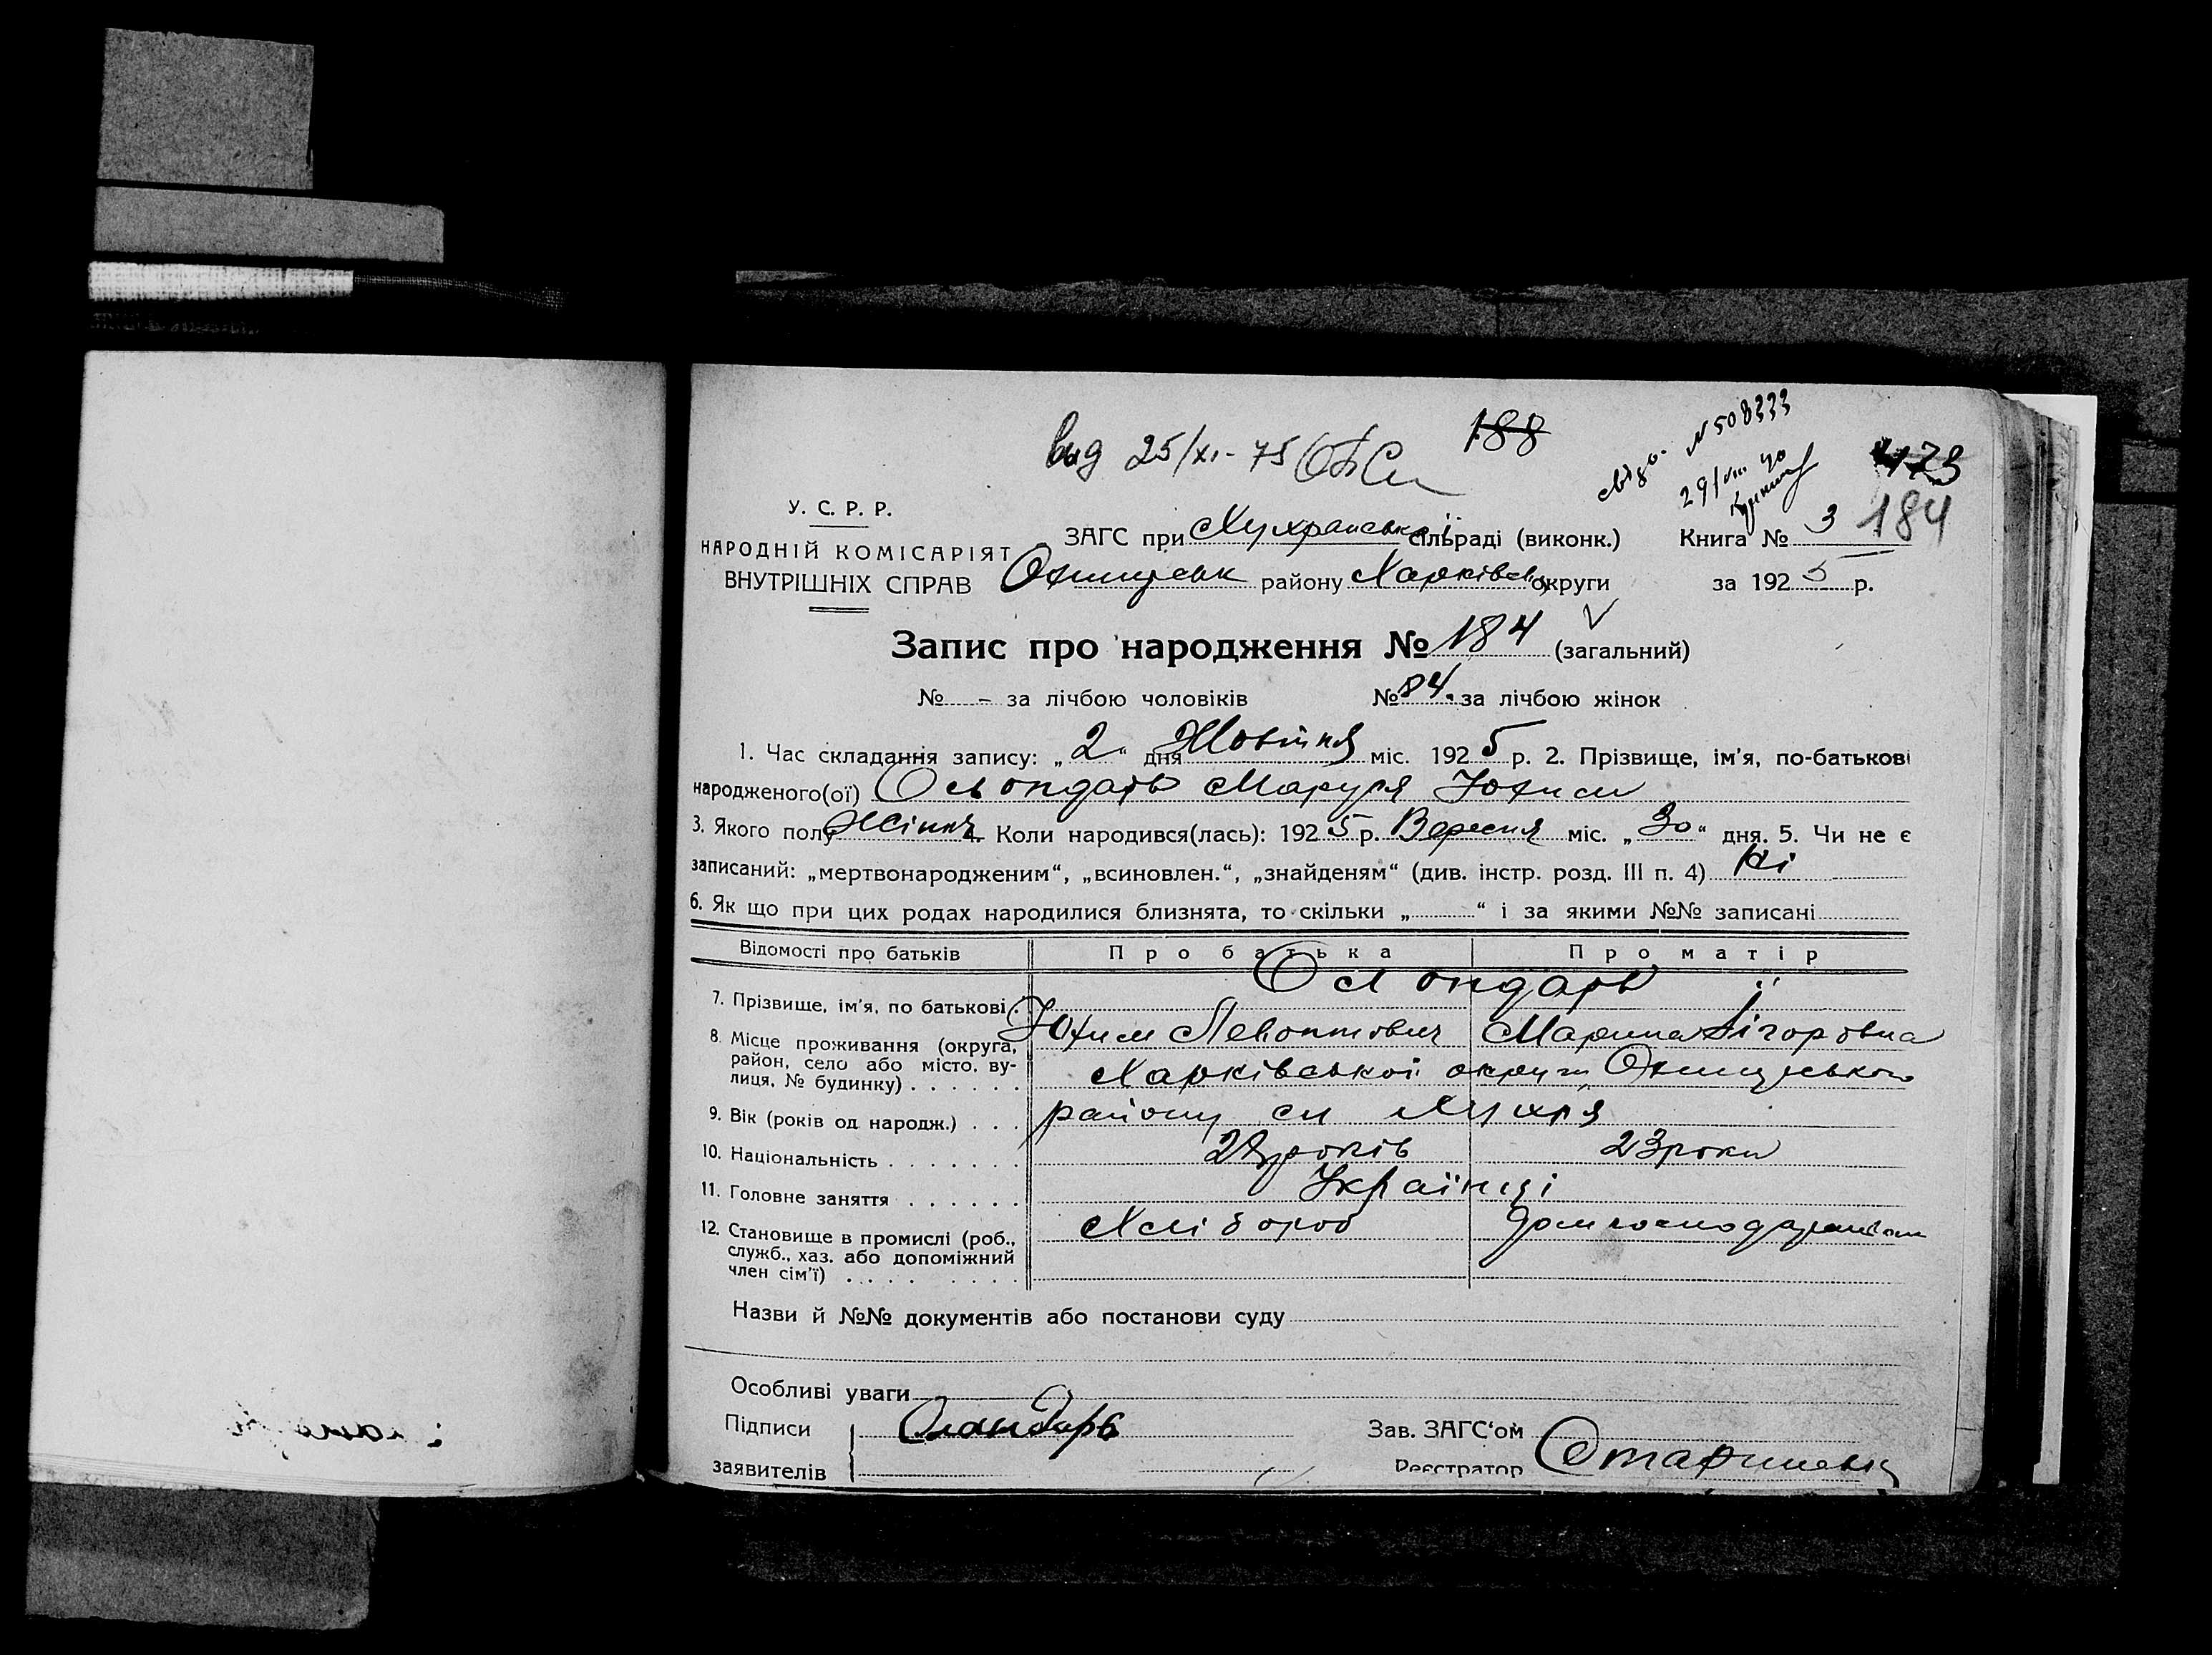 вид 25/XI-75
188
N 508333
29/VIII 40
473
184
У. С. Р. Р.
НАРОДНІЙ КОМІСАРІЯТ
ВНУТРІШНІХ СПРАВ
ЗАГС при Хухранській сільраді (виконк.) Книга № 3
Охтирськ району Харківськ округи за 1925 р.
Запис про народження № 184 (загальний)
№ - за лічбою чоловіків № 84. за лічбою жінок
1. Час складання запису: „2“ дня Жовтня міс. 1925 р. 2. Прізвище, ім'я, по-батькові
народженого(ої) Маруся Юхим
3. Якого полу Жіноч 4. Коли народився(лась): 1925 р. Вересня міс. „30“ дня. 5. Чи не є
записаний: „мертвонародженим“, „всиновлен.“, „знайденям“ (див. інстр. розд. III п. 4) Ні
6. Як що при цих родах народилися близнята, то скільки „ “ і за якими №№ записані
Відомості про батьків Про батька Про матір
7. Прізвище, ім'я, по батькові.
Юхим Левонтович Марина Ігоровна
8. Місце проживання (округа, район, село або місто, вулиця, № будинку)
Харківської округи Охтирського
району сл Хухря
9. Вік (років од народж.)
23 роки
10. Національність
Українці
11. Головне заняття
Хлібороб
12. Становище в промислі (роб., служб., хаз. або допоміжний член сім'ї)
Назви й №№ документів або постанови суду
Особливі уваги
Підписи
заявителів
Зав. ЗАГС'ом
Реєстратор